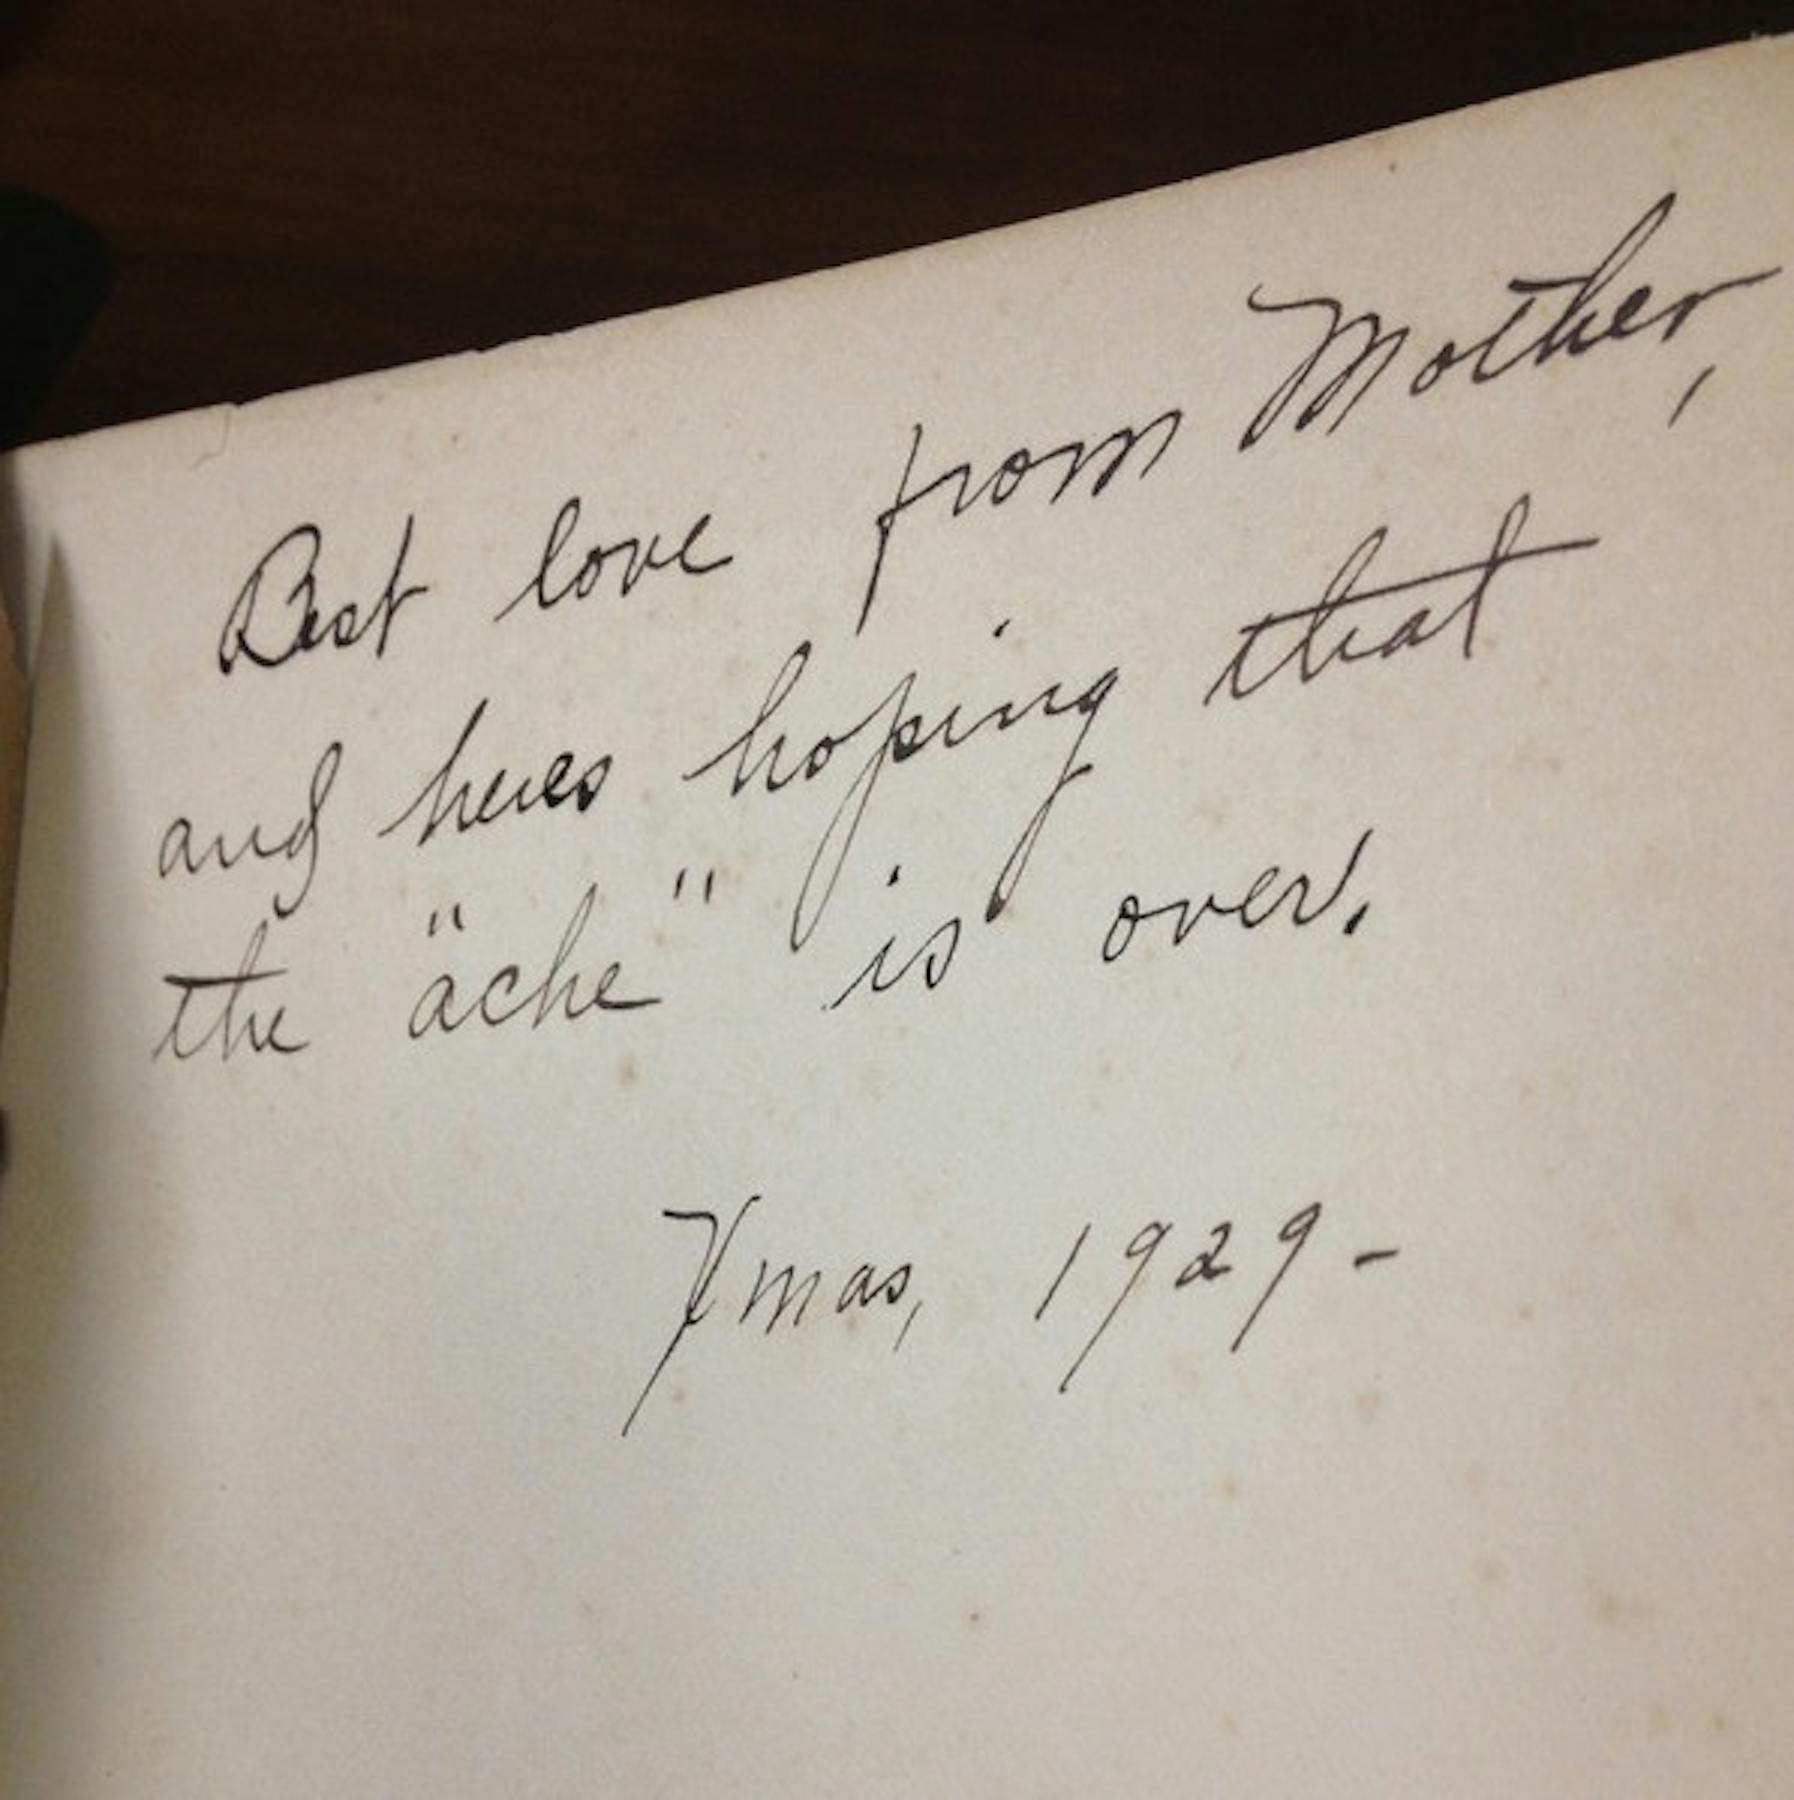 Best love from Mother,
and heres hoping that
the "ache" is over.
Xmas, 1929-